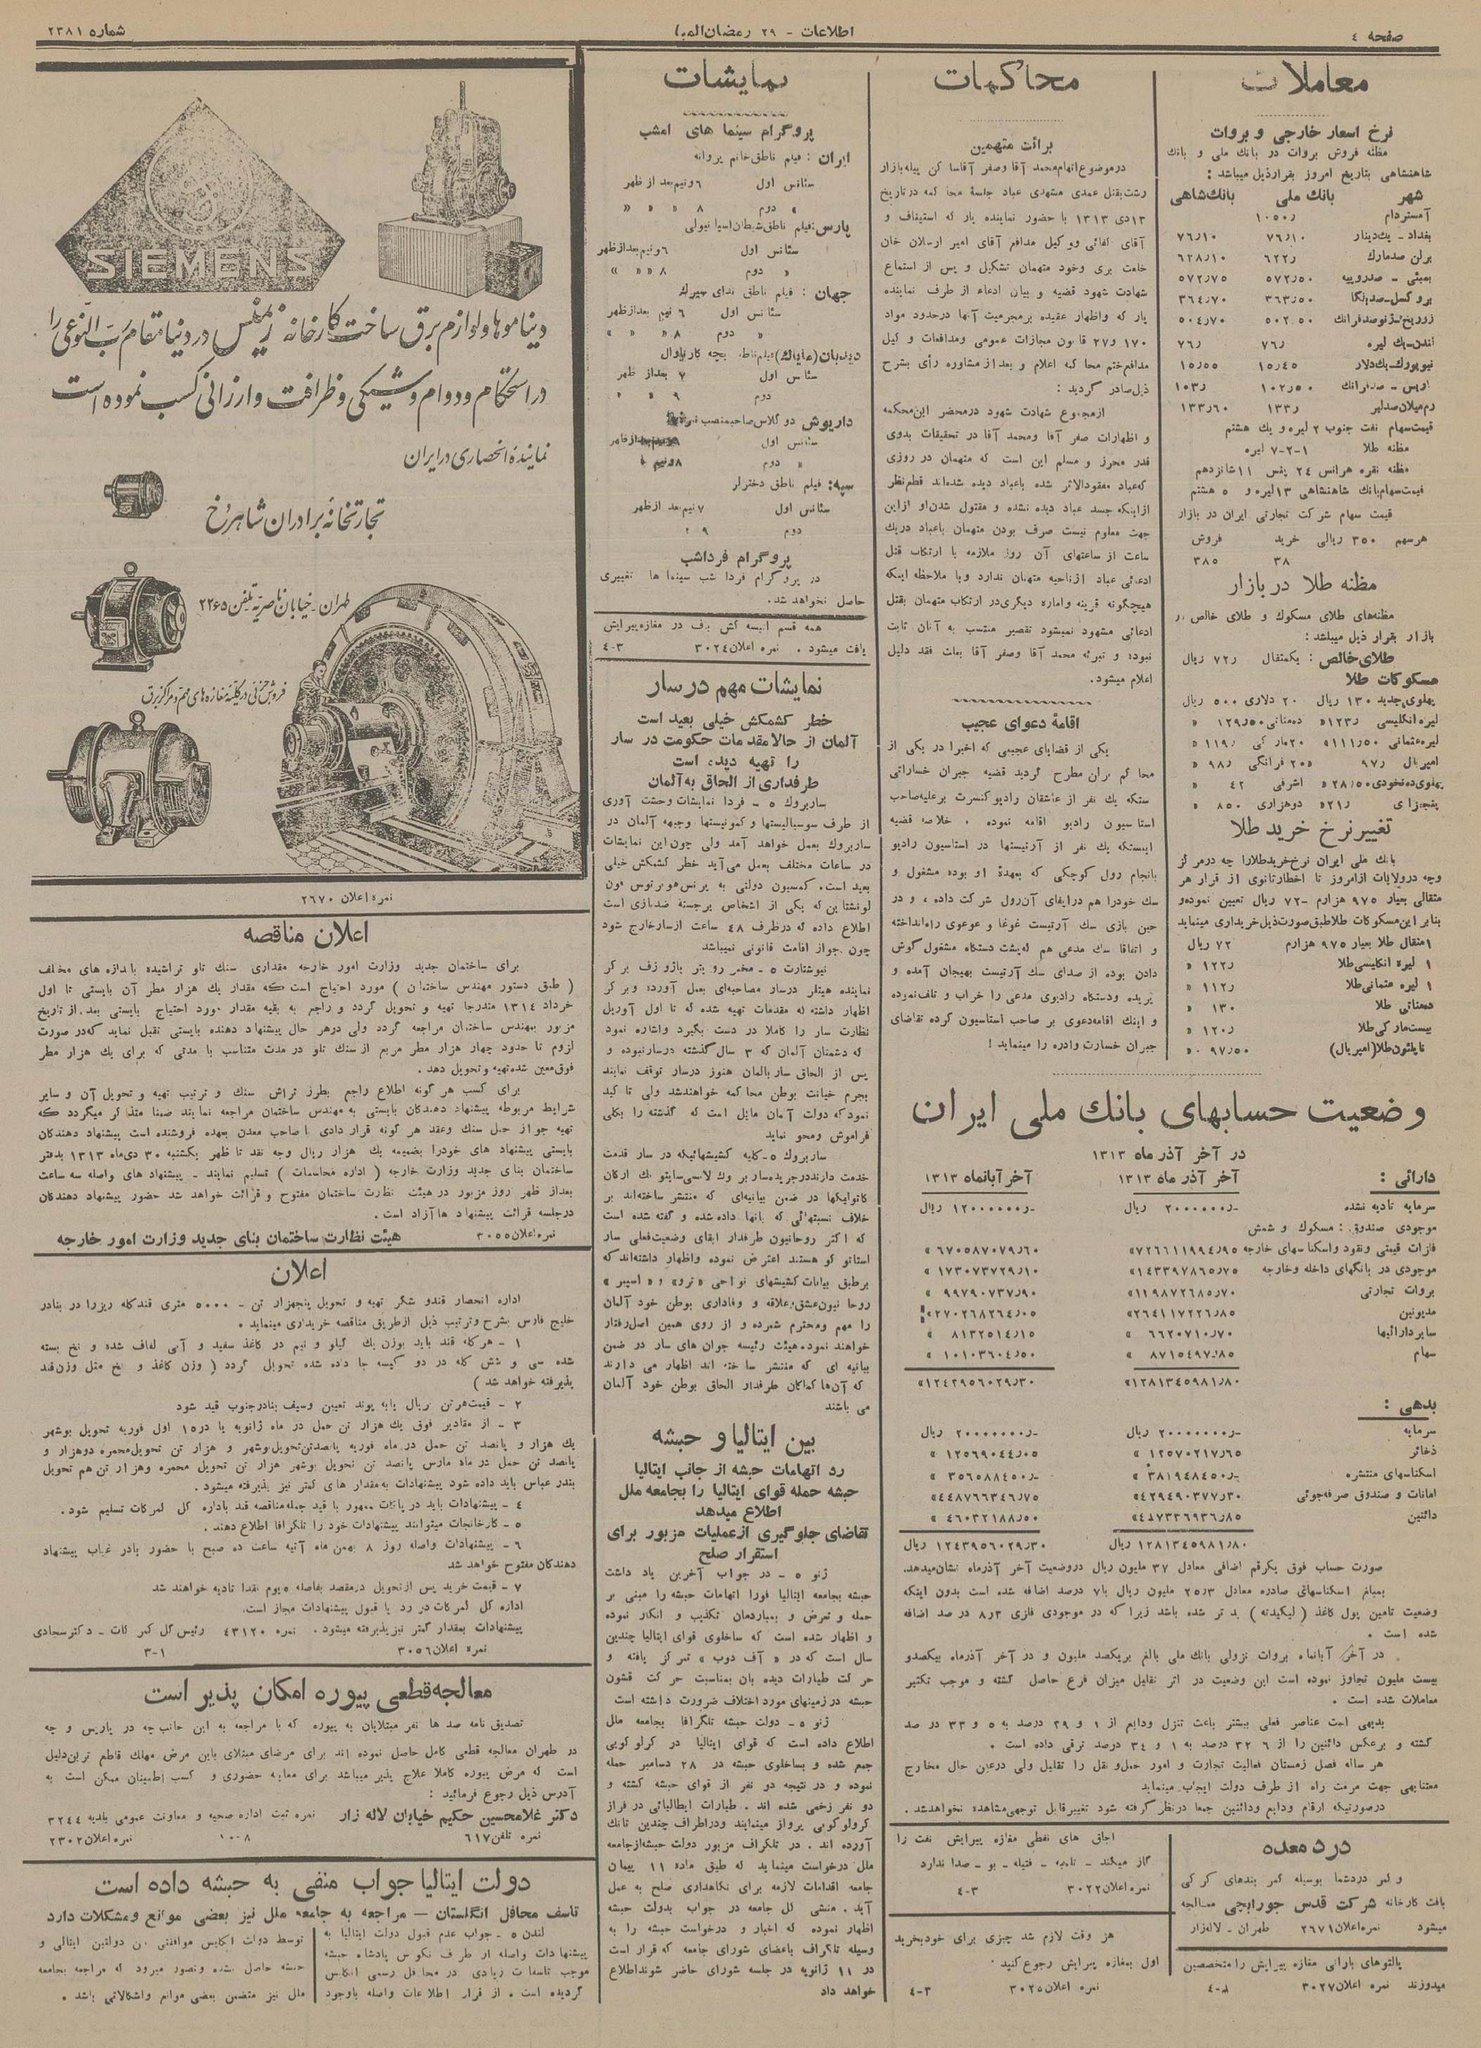 صفحه ٤
اطلاعات - ٢٩ رمضان
شماره ٢٣٨١
معاملات
نرخ اسعار خارجی و بروات
مظنه فروش بروات در بانك ملی و بانك
شاهنشاهی بتاریخ امروز بقرارذیل میباشد :
شهر بانك ملی بانك شاهی
آمستردام
بغداد - یكدینار ٧٦٫١٠ ٧٦٫١٠
برلن صدمارك ٦٢٢٫ ٦٢٨٫١٠
بمبئی - صدروپیه ٥٧٢٫٥٠ ٥٧٢٫٧٥
٣٦٣٫٥٠ ٣٦٤٫٧٠
٥٠٤٫٧٠
٧٦٫ ٧٦٫
نیویورك-یك‌دلار ١٥٫٤٥ ١٥٫٥٥
١٠٢٫٥٠ ١٠٣٫
١٣٣٫ ١٣٣٫٦٠
قیمت‌سهام نفت جنوب ٢ لیره و یك هشتم
مظنه طلا ١-٢-٧ لیره
مظنه نقره هرانس ٢٤ پنس ١١ شانزدهم
قیمت‌سهام‌بانك شاهنشاهی ١٣ لیره و ٥ هشتم
قیمت سهام شرکت تجارتی ایران در بازار
هرسهم ٣٥٠ ریالی خرید فروش
٣٨٥
مظنه طلا در بازار
مظنه‌های طلای مسکوك و طلای خالص
بازار بقرار ذیل میباشد :
طلای خالص : یکمثقال ٧٢٫ ریال
مسکوکات طلا
پهلوی جدید ١٣٠ ریال ٢٠ دلاری ٥٠٠ ریال
لیره انگلیسی ١٢٣٫ » ده‌مناتی ١٢٩٫٥٠ »
لیره عثمانی ١١١٫٥٠ » ٢٠ مارکی ١١٩٫ »
امپریال ٩٧٫ » ٢٠ فرانکی ٩٨٫ »
٢٨٫٥٠ » اشرفی ٤٢ »
پنجزاری ٢١٫ » دوهزاری ٨٥٠ »
تغییر نرخ خرید طلا
بانك ملی ایران نرخ خریدطلارا چه درمرکز
وچه درولایات ازامروز تا اخطارثانوی از قرار هر
مثقالی بعیار ٩٧٥ هزارم ٧٢- ریال تعیین نموده‌و
بنابر این‌مسکوکات طلاطبق‌صورت‌ذیل‌خریداری مینماید
١ مثقال طلا بعیار ٩٧٥ هزارم ٧٢ ریال
١ لیره انگلیسی‌طلا ١٢٢٫ »
١ لیره عثمانی‌طلا ١١٢٫ »
ده‌مناتی طلا ١٣٠ »
بیست‌مارکی‌طلا ١٢٠٫ »
ناپلئون‌طلا(امپریال) ٩٧٫٥٠ »
محاکمات
برائت متهمین
درموضوع‌اتهام‌محمد آقا وصفر آقاسا کن پیله‌بازار
رشت‌بقتل عمدی مشهدی عباد جلسهٔ محا کمه درتاریخ
١٣دی ١٣١٣ با حضور نماینده پارکه استیناف و
خلعت بری وخود متهمان تشکیل و پس از استماع
شهادت شهود قضیه و بیان ادعاء از طرف نماینده
پارکه واظهار عقیده برمجرمیت آنها درحدود مواد
١٧٠ و٢٧ قانون مجازات عمومی ومدافعات وکیل
مدافع‌ختم محا کمه اعلام و بعد از مشاوره رأی بشرح
ذیل‌صادر گردید :
ازمجموع شهادت شهود درمحضر این‌محکمه
و اظهارات صفر آقا ومحمد آقا در تحقیقات بدوی
قدر محرز و مسلم این است که متهمان در روزی
که‌عباد مفقودالاثر شده باعباد دیده شده‌اند قطع‌نظر
ازاینکه جسد عباد دیده نشده و مقتول شدن‌او ازاین
جهت معلوم نیست صرف بودن متهمان باعباد دریك
ساعت از ساعتهای آن روز ملازمه با ارتکاب قتل
ادعائی عباد ازناحیه متهمان ندارد وبا ملاحظه اینکه
هیچگونه قرینه واماره دیگری‌در ارتکاب متهمان بقتل
ادعائی مشهود نمیشود تقصیر منتسب به آنان ثابت
نبوده و تبرئه محمد آقا وصفر آقا بعلت فقد دلیل
اعلام میشود.
اقامهٔ دعوای عجیب
یکی از قضایای عجیبی که اخیرا در یکی از
محا کم مطرح گردید قضیه جبران خساراتی
ستکه یك نفر از عاشقان رادیوکنسرت برعلیه‌صاحب
استاسیون رادیو اقامه نموده . خلاصه قضیه
اینستکه یك نفر از آرتیستها در استاسیون رادیو
بانجام رول کوچکی که بعهدهٔ او بوده مشغول و
سك خودرا هم درایفای آن‌رول شرکت داده ، و در
حین بازی سك آرتیست غوغا و عوعوی راه‌انداخته
و اتفاقا سك مدعی هم که‌پشت دستگاه مشغول‌گوش
دادن بوده از صدای سك آرتیست بهیجان آمده و
پریده ودستگاه رادیوی مدعی را خراب و تلف‌نموده
و اینك اقامه‌دعوی بر صاحب استاسیون کرده تقاضای
جبران خسارت وارده را مینماید !
وضعیت حسابهای بانك ملی ایران
در آخر آذر ماه ١٣١٣
دارائی : آخر آذر ماه ١٣١٣ آخر آبانماه ١٣١٣
سرمایه تادیه نشده
موجودی صندوق : مسکوك و شمش
فلزات قیمتی ونقود واسکناسهای خارجه ٧٢٦٦١١٩٩٤٫٩٥ » ٦٧٠٥٨٧٠٧٩٫٦٠ »
موجودی در بانکهای داخله وخارجه ١٤٣٣٩٧٨٦٥٫٧٥ » ١٧٣٠٧٣٧٢٩٫١٠ »
بروات تجارتی ١١٩٨٧٢٦٨٥٫٧٠ » ٩٩٧٩٠٧٣٧٫٩٠ »
مدیونین ٢٦٤١١٧٢٢٦٫٨٥ » ٢٧٠٢٦٨٢٦٤٫٠٥ »
سایردارائیها ٦٦٢٠٧١٠٫٧٠ » ٨١٣٢٥١٤٫١٥ »
سهام ٨٧١٥٤٩٧٫٨٥ » ١٠١٠٣٦٠٤٫٥٠ »
١٢٨١٣٤٥٩٨١٫٨٠ » ١٢٤٢٩٥٦٠٢٩٫٣٠ »
بدهی :
سرمایه
ذخائر ١٢٥٧٠٢١٧٫٦٥ » ١٢٥٦٩٠٤٤٫٠٥ »
اسکناسهای منتشره
امانات و صندوق صرفه‌جوئی ٤٢٩٤٩٠٣٧٧٫٣٠ » ٤٤٨٧٦٦٣٤٦٫٧٥ »
دائنین
١٢٨١٣٤٥٩٨١٫٨٠ ریال ١٢٤٣٩٥٦٠٢٩٫٣٠ ریال
صورت حساب فوق یکرقم اضافی معادل ٣٧ ملیون ریال دروضعیت آخر آذرماه نشان‌میدهد.
بمبلغ اسکناسهائی صادره معادل ٢٥٫٣ ملیون ریال با٧ درصد اضافه شده است بدون اینکه
وضعیت تامین پول کاغذ ( لیکیدیته ) بد تر شده باشد زیرا که در موجودی فلزی ٨٫٣ در صد اضافه
شده است .
در آخر آبانماه بروات نزولی بانك ملی بالغ بریکصد ملیون و در آخر آذرماه بیکصدو
بیست ملیون تجاوز نموده است این وضعیت در اثر تقلیل میزان فرع حاصل گشته و موجب تکثیر
معاملات شده است .
بدیهی است عناصر فعلی بیشتر باعث تنزل ودایع از ١ و ٢٩ درصد به ٥ و ٣٣ در صد
گشته و برعکس دائنین را از ٦ ٣٢ درصد به ١ و ٣٤ درصد ترقی داده است .
هر ساله فصل زمستان فعالیت تجارت و امور حمل‌و نقل را تقلیل ولی درعین حال مخارج
معتنابهی جهت مرمت راه از طرف دولت ایجاب مینماید
درصورتیکه ارقام ودایع ودائنین جمعا درنظر گرفته شود تغییرقابل توجهی‌مشاهده نخواهدشد.
درد معده
و کمر دردشما بوسیله کمر بندهای کرکی
بافت کارخانه شرکت قدس جورابچی معالجه
میشود نمره‌اعلان ٢٦٧١ طهران - لاله‌زار
پالتوهای بارانی مغازه پیرایش را متخصصین
میدوزند نمره اعلان ٣٠٢٧
اجاق های نفطی مغازه پیرایش نفت را
گاز میکند - تلمبه - فتیله - بو - صدا ندارد
نمره اعلان ٣٠٢٢ ٣-٤
هر وقت لازم شد چیزی برای خودبخرید
اول بمغازه پیرایش رجوع‌کنید .
نمره اعلان ٣٠٢٥ ٣-٤
نمایشات
پروگرام سینما های امشب
ایران : فیلم ناطق خانم پروانه
سئانس اول ٦ونیم‌بعد از ظهر
» دوم ٨ » » »
پارس:
سئانس اول ٦ونیم بعدازظهر
» دوم ٨ » » »
جهان : فیلم ناطق ندای سیرك
سئانس اول ٦ نیم بعدازظهر
» دوم ٨ » »
دیدبان
سئانس اول ٧ بعداز ظهر
دوم ٩ » »
داریوش
سئانس اول
» دوم ٨ونیم »
سپه: فیلم ناطق
سئانس اول ٧ نیم‌بعد ازظهر
دوم ٩
پروگرام فرداشب
در پروگرام فردا شب سینما ها تغییری
حاصل نخواهد شد.
همه قسم البسه کش باف در مغازه‌پیرایش
یافت میشود . نمره اعلان ٣٠٢٤ ٣-٤
نمایشات مهم در سار
خطر کشمکش خیلی بعید است
آلمان از حالا مقدمات حکومت در سار
را تهیه دیده است
طرفداری از الحاق به‌آلمان
ساربروك ٥ - فردا نمایشات وحشت آوری
از طرف سوسیالیستها و کمونیستها وجبهه آلمان در
ساربروك بعمل خواهد آمد ولی چون‌این نمایشات
در ساعات مختلف بعمل می‌آید خطر کشمکش خیلی
بعید است. کمسیون دولتی به پرنس‌هوبرتوس فون
لونشتاین که یکی از اشخاص برجستهٔ ضدنازی است
اطلاع داده که درظرف ٤٨ ساعت ازسارخارج شود
چون جواز اقامت قانونی نمیباشد
نماینده هیتلر درسار مصاحبه‌ای بعمل آورده وبرکل
اظهار داشته که مقدمات تهیه شده که تا اول آوریل
نظارت سار را کاملا در دست بگیرد واشاره نمود
که دشمنان آلمان که ٣ سال‌گذشته درساربوده و
پس از الحاق سار بآلمان هنوز درسار توقف نمایند
بجرم خیانت بوطن محا کمه خواهندشد ولی تا کید
نمودکه دولت آلمان مایل است که گذشته را بکلی
فراموش ومحو نماید
ساربروك ٥-کلیه کشیشهائیکه در سار قدمت
خدمت دارنددرجریده‌ساربروك
کاتولیکها در ضمن بیانیه‌ای که منتشر ساخته‌اند بر
خلاف نسبتهائی که بآنها داده‌شده و گفته شده است
که اکثر روحانیون طرفدار ابقای وضعیت‌فعلی سار
استاتو کو هستند اعتراض نموده واظهار داشته‌اندکه
برطبق بیانات کشیشهای نواحی
روحا نیون‌عشق‌وعلاقه و وفاداری بوطن خود آلمان
را مهم ومحترم شمرده و از روی همین اصل‌رفتار
خواهند نمود.هیئت رئیسه جوان های سار در ضمن
بیانیه ای که منتشر ساخته اند اظهار می دارند
که آن‌ها کماکان طرفدار الحاق بوطن خود آلمان
می باشند
بین ایتالیا و حبشه
رد اتهامات حبشه از جانب ایتالیا
حبشه حمله قوای ایتالیا را بجامعه ملل
اطلاع میدهد
تقاضای جلوگیری ازعملیات مزبور برای
استقرار صلح
ژنو ٥ - در جواب آخرین یاد داشت
حبشه بجامعه ایتالیا فورا اتهامات حبشه را مبنی بر
حمله و تعرض و بمباردمان تکذیب و انکار نموده
و اظهار شده است که ساخلوی قوای ایتالیا چندین
سال است که در « آف دوب » تمرکز یافته و
حرکت طیارات دیده بان بمناسبت حرکت قشون
حبشه درزمینهای مورد اختلاف ضرورت داشته است
ژنو ٥- دولت حبشه تلگرافا بجامعه ملل
اطلاع داده است که قوای ایتالیا در کرلوکوبی
جمع شده و بساخلوی حبشه در ٢٨ دسامبر حمله
نموده و در نتیجه دو نفر از قوای حبشه کشته و
دو نفر زخمی شده اند . طیارات ایطالیائی در فراز
کرولوکوبی پرواز مینمایند ودراطراف چندین تانك
آورده اند . در تلگراف مزبور دولت حبشه‌ازجامعه
ملل درخواست مینماید که طبق ماده ١١ پیمان
جامعه اقدامات لازمه برای نگاهداری صلح به عمل
آید . منشی کل جامعه در جواب بدولت حبشه
اظهار نموده که اخبار و درخواست حبشه را به
وسیله تلگراف باعضای شورای جامعه که قرار است
در ١١ ژانویه در جلسه شورای حاضر شونداطلاع
خواهد داد
SIEMENS
دیناموها و لوازم برق ساخت کارخانه زیمنس در دنیا مقام رب النوعی را
در استحکام و دوام و شیکی و ظرافت و ارزانی کسب نموده است
نماینده انحصاری در ایران
تجارتخانه برادران شاهرخ
طهران - خیابان ناصریه تلفن ٢٢٦٥
فروش جزئی در کلیه مغازه های مهم و مراکز برق
نمره اعلان ٢٦٧٠
اعلان مناقصه
برای ساختمان جدید وزارت امور خارجه مقداری سنك تلو تراشیده باندازه های مختلف
( طبق دستور مهندس ساختمان ) مورد احتیاج است که مقدار یك هزار مطر آن بایستی تا اول
خرداد ١٣١٤ متدرجا تهیه و تحویل گردد و راجع به بقیه مقدار مورد احتیاج بایستی بعد از تاریخ
مزبور بمهندس ساختمان مراجعه گردد ولی درهر حال پیشنهاد دهنده بایستی تقبل نماید که‌در صورت
لزوم تا حدود چهار هزار مطر مربع ازسنك تلو درمدت متناسب با مدتی که برای یك هزار مطر
فوق‌معین شده‌تهیه و تحویل دهد .
برای کسب هر گونه اطلاع راجع بطرز تراش سنك و ترتیب تهیه و تحویل آن و سایر
شرایط مربوطه پیشنهاد دهندگان بایستی به‌مهندس ساختمان مراجعه نمایند ضمنا متذکر میگردد که
تهیه جواز حمل سنك وعقد هر گونه قرار دادی با صاحب معدن بعهده فروشنده است پیشنهاد دهندگان
بایستی پیشنهاد های خودرا بضمیمه یك هزار ریال وجه نقد تا ظهر یکشنبه ٣٠ دی‌ماه ١٣١٣ بدفتر
ساختمان بنای جدید وزارت خارجه ( اداره محاسبات ) تسلیم نمایند . - پیشنهاد های واصله سه ساعت
بعداز ظهر روز مزبور درهیئت نظارت ساختمان مفتوح و قرائت خواهد شد حضور پیشنهاد دهندکان
درجلسه قرائت پیشنهاد ها آزاد است .
نمره‌اعلان ٣٠٥٥ هیئت نظارت ساختمان بنای جدید وزارت امور خارجه
اعلان
اداره انحصار قندو شکر تهیه و تحویل پنجهزار تن - ٥٠٠٠ متری قندکله ریزرا در بنادر
خلیج فارس بشرح وترتیب ذیل ازطریق مناقصه خریداری مینماید .
١ - هرکله قند باید بوزن یك کیلو و نیم در کاغذ سفید و آبی لفاف شده و نخ بسته
شده سی و شش کله در دو کیسه جا داده شده تحویل گردد ( وزن کاغذ و نخ مثل وزن‌قند
پذیرفته خواهد شد )
٢ - قیمت‌هرتن بریال یابه پوند تعیین وسیف بنادرجنوب قید شود
٣ - از مقادیر فوق یك هزار تن حمل در ماه ژانویه یا در١٥ اول فوریه تحویل بوشهر
یك هزار و پانصد تن حمل در ماه فوریه پانصدتن‌تحویل‌بوشهر و هزار تن تحویل‌محمره دوهزار و
پانصد تن حمل در ماه مارس پانصد تن تحویل بوشهر هزار تن تحویل محمره وهزار تن هم تحویل
بندرعباس باید داده شود پیشنهادات به‌مقدار های کمتر نیز پذیرفته میشود .
٤ - پیشنهادات باید در پاکات ممهور با قید جمله‌مناقصه قند باداره کل گمرکات تسلیم شود.
٥ - کارخانجات میتوانند پیشنهادات خود را تلگرافا اطلاع دهند .
٦ - پیشنهادات واصله روز ٨ بهمن ماه آتیه ساعت ده صبح با حضور یادر غیاب پیشنهاد
دهندگان مفتوح خواهد شد
٧ - قیمت خرید پس ازتحویل درمقصد بفاصله ٥یوم نقدا تادیه خواهند شد
اداره کل گمرکات در رد یا قبول پیشنهادات مجاز است.
پیشنهادات بمقدار کمتر نیزپذیرفته میشود . نمره ٤٣١٢٠ رئیس‌کل گمرکات - دکترسجادی
نمره اعلان ٣٠٥٦ ١-٣
معالجه‌قطعی پیوره امکان پذیر است
تصدیق نامه صد ها نفر مبتلایان به پیوره که با مراجعه به این جانب‌چه در پاریس و چه
در طهران معالجه قطعی کامل حاصل نموده اند برای مرضای مبتلای باین مرض مهلك قاطع ترین‌دلیل
است که مرض پیوره کاملا علاج پذیر میباشد برای معاینه حضوری و کسب اطمینان ممکن است به
آدرس ذیل رجوع فرمائید :
دکتر غلامحسین حکیم خیابان لاله زار نمره ثبت اداره صحیه و معاونت عمومی بلدیه ٣٢٤٤
نمره تلفن ٦١٧ ٨-١٠ نمره اعلان ٢٣٠٢
دولت ایتالیا جواب منفی به حبشه داده است
تاسف محافل انگلستان - مراجعه به جامعه ملل نیز بعضی موانع ومشکلات دارد
لندن ٥ - جواب عدم قبول دولت ایتالیا به
پیشنهادات واصله از طرف نگوس پادشاه حبشه
موجب تاسفات زیادی در محافل رسمی انگلیس
گردیده است . از قرار اطلاعات واصله باوجود
توسط دولت انگلیس موافقتی بین دولتین ایتالی و
حبشه حاصل نشده وتصور میرود که مراجعه بجامعه
ملل نیز متضمن بعضی موانع واشکالاتی باشد .